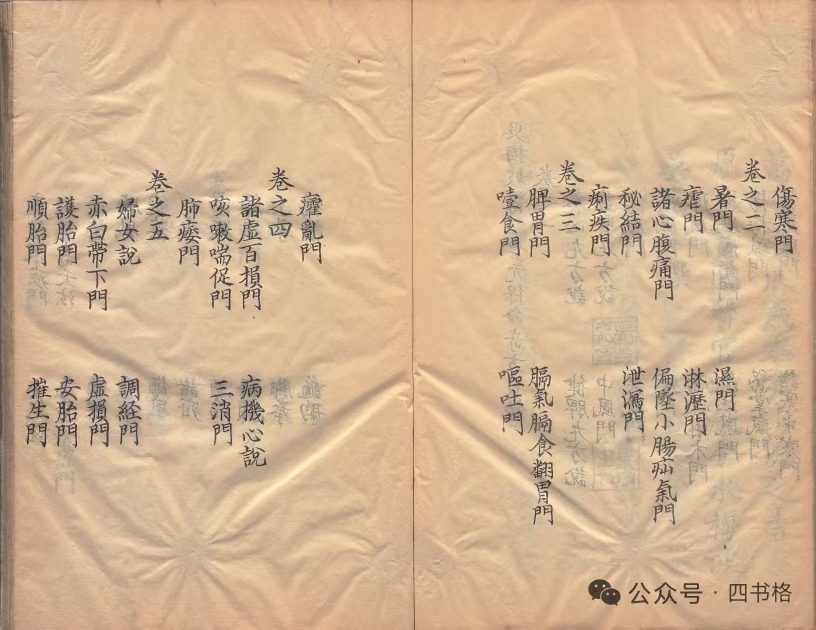 傷寒門
卷之二
暑門 濕門
瘧門 淋瀝門
諸心腹痛門 偏墜小腸疝氣門
秘結門 泄瀉門
痢疾門
卷之三
脾胃門 膈氣膈食翻胃門
噎食門 嘔吐門
癨亂門
卷之四
諸虛百損門 病機心說
咳嗽喘促門 三消門
肺痿門
卷之五
婦女說 調經門
赤白帶下門 虛損門
護胎門 安胎門
順胎門 摧生門
公众号·四书格